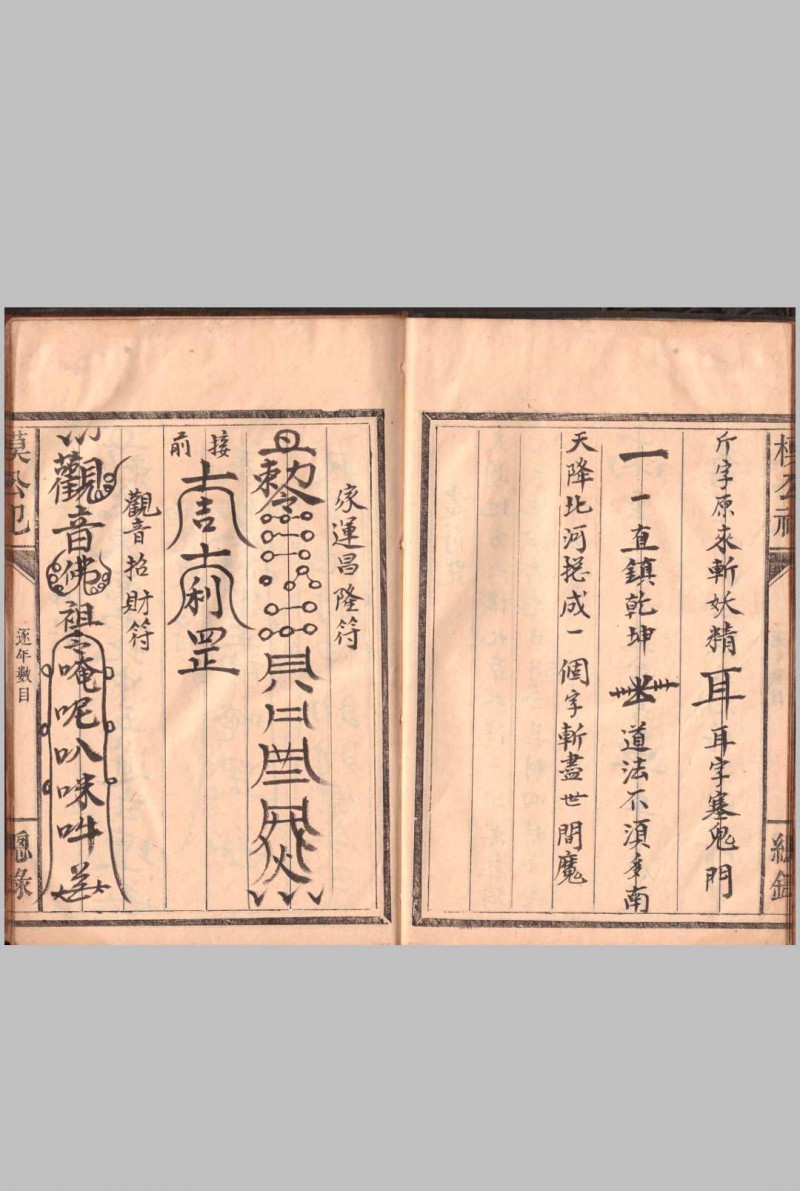 斤字原來斬妖精 耳 耳字塞鬼門
一 一直鎮乾坤 道法不須多南
天降北河搃成一個字斬盡世間魔
家運昌隆符
敕令
接前
吉利罡
觀音招財符
觀音佛祖 唵呢叭咪吽
逐年數目
總錄